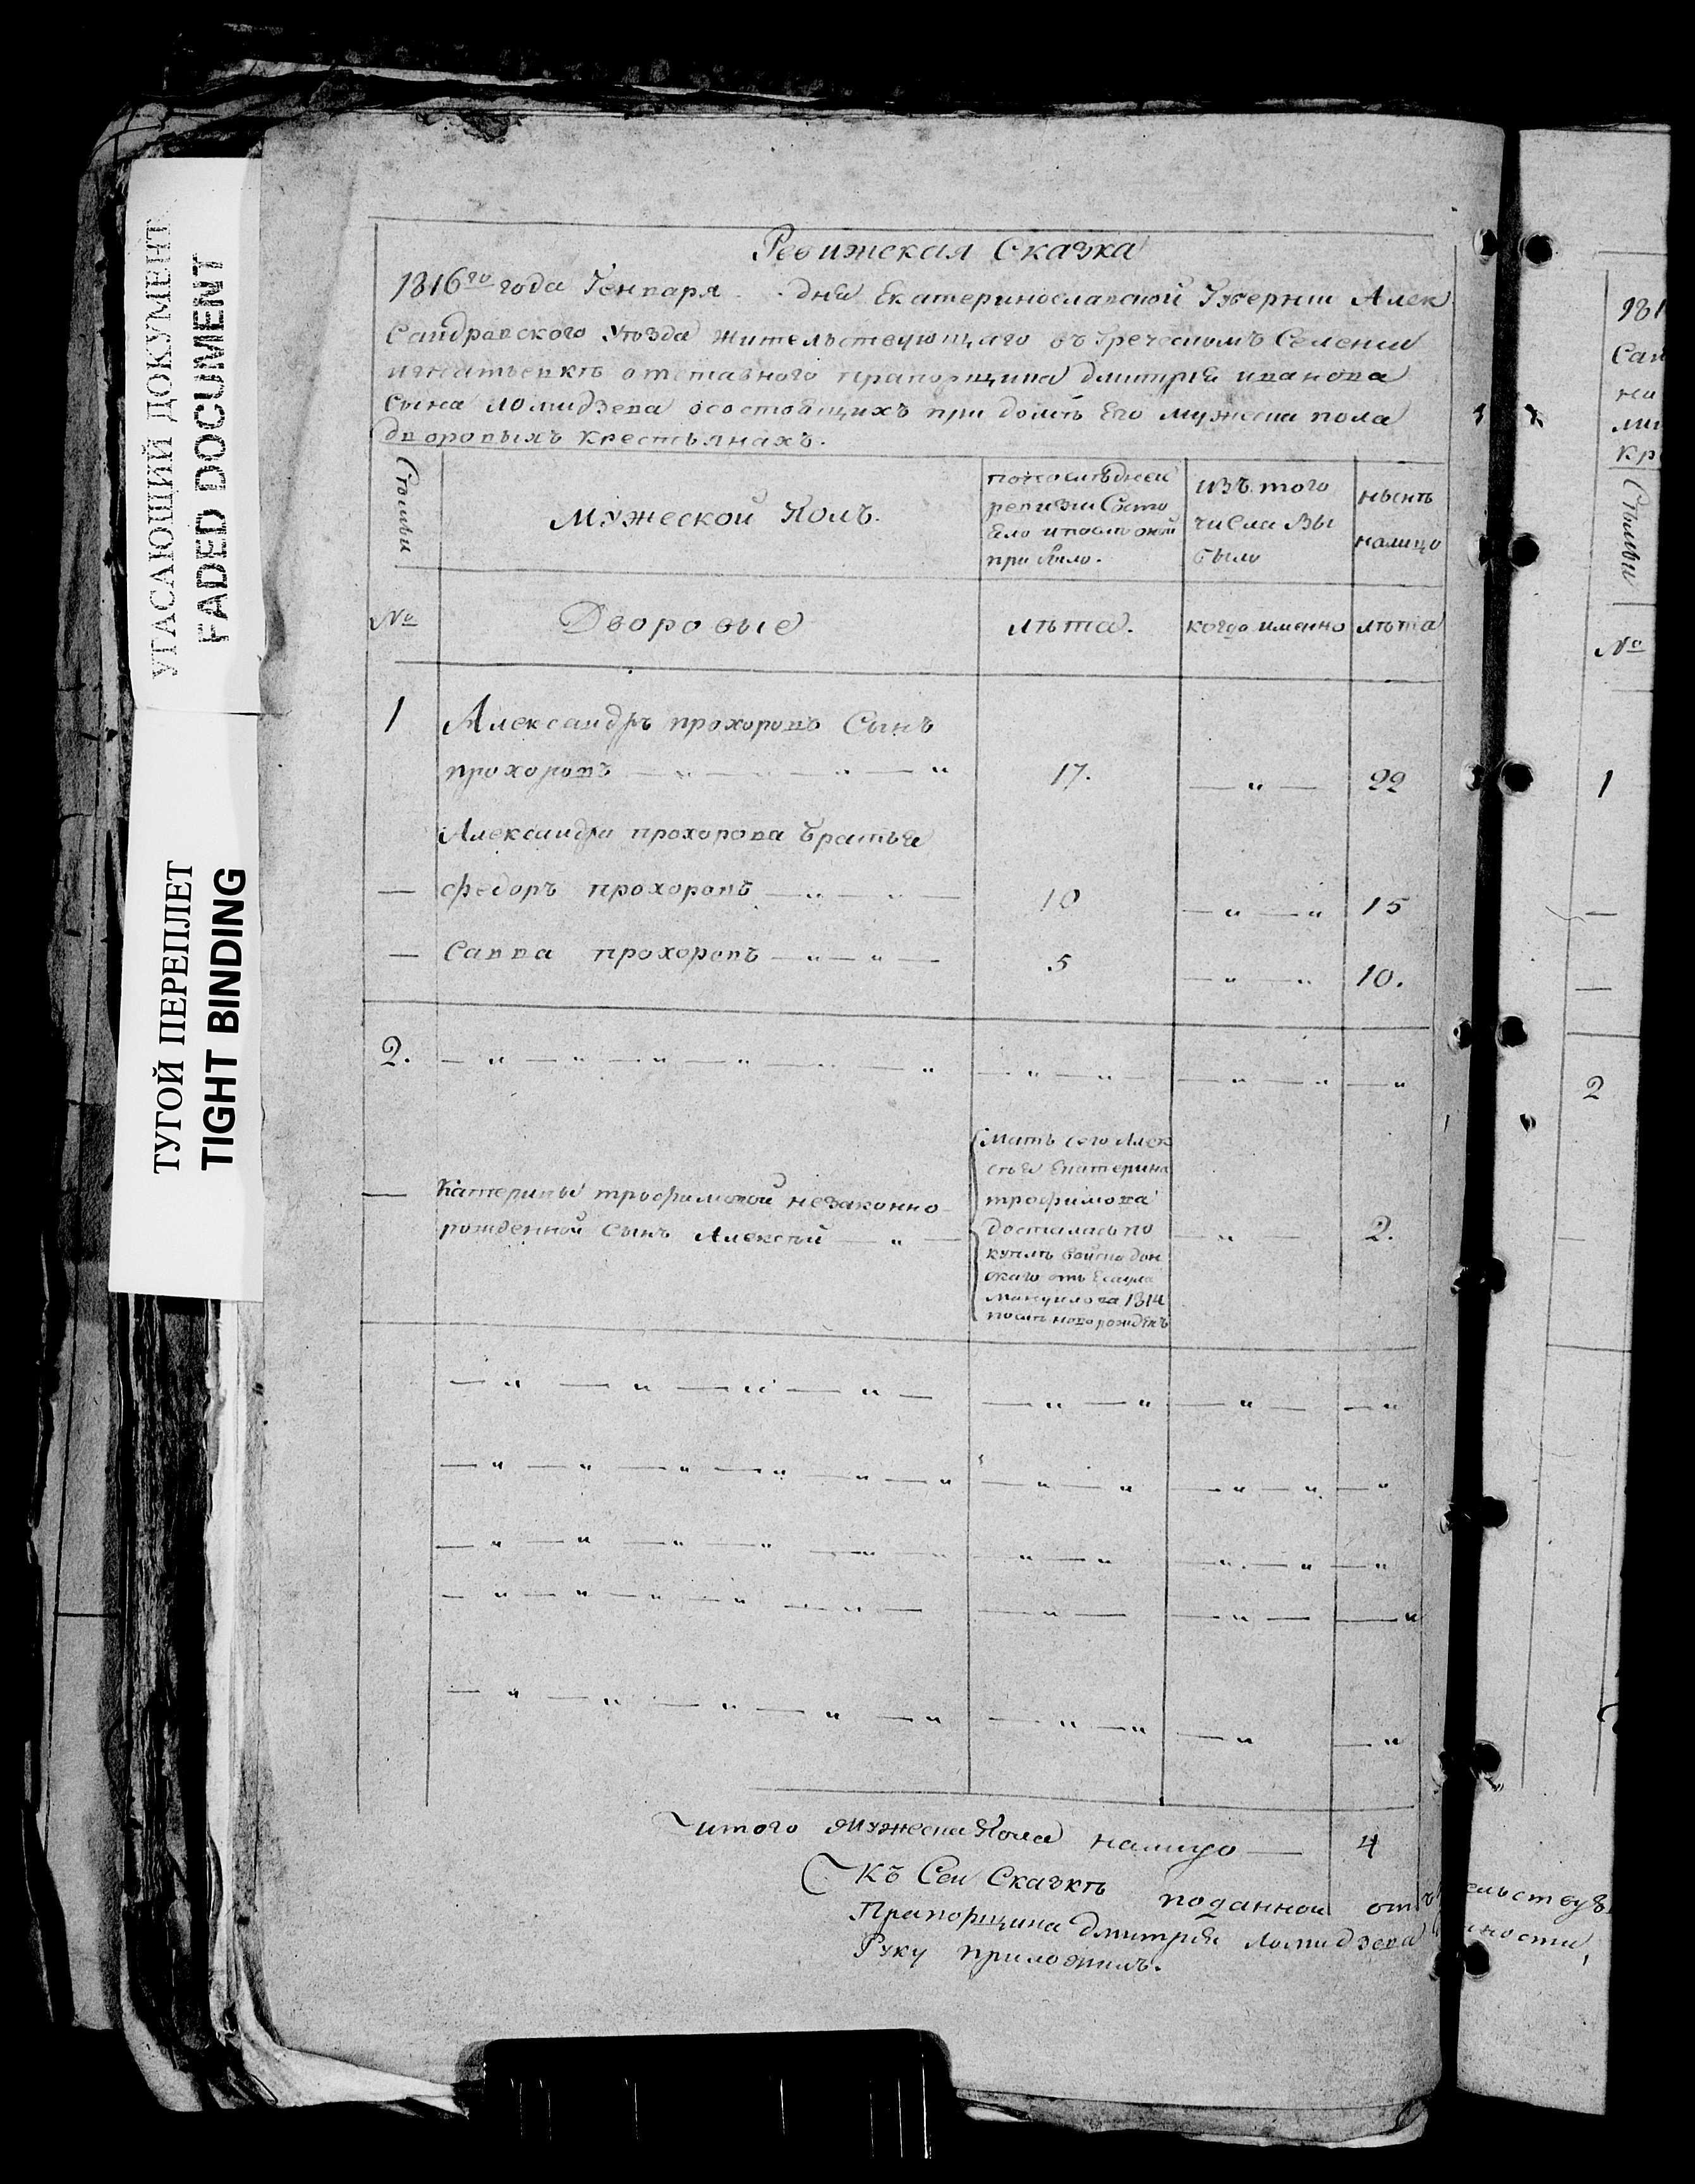 УГАСАЮЩИЙ ДОКУМЕНТ
FADED DOCUMENT
ТУГОЙ ПЕРЕПЛЕТ
TIGHT BINDING
Ревижская Сказка
1816го года Генваря дня Екатеринославской Губернии Алек
Сандравского Уѣзда жительствующаго въ Греческомъ Селении
игнатьевкѣ отставного прапорщика дмитрия иванова
Сына ломидзева осостоящихъ при домѣ Его мужеска пола
дворовыхъ крестьянахъ.
Мужеской Полъ.
попослѣдней
ревизии Състо
яло ипослѣ оной
прибыло.
изъ того
числа Вы
было
нынѣ
налицо
№
Дворовые
лѣта.
когда именно
лѣта
1 Александръ прохоровъ Сынъ
прохоровъ — „ — „ — „ — „ 17. — „ — 22
Александра прохорова братья
— федоръ прохоровъ — „ — „ — 10 — „ — „ 15
— Савва прохоровъ — „ — „ — 5 — „ — „ 10.
2. — „ — „ — „ — „ — „ — „
Мать сего Алек
сѣя Екатерина
трофимова
досталась по
купкѣ войска дон
скаго отъ Есаула
1814
— Катерины трофимовой незаконно
рожденной сынъ Алексѣй — „ — — „ — 2.
итого Мужеска Пола налицо — 4
Къ Сей Сказкѣ поданной отъ
Прапорщика дмитрия Ломидзева
Руку приложилъ.
181
Сан
на
ми
кр
№
1
2
ельству
ности,